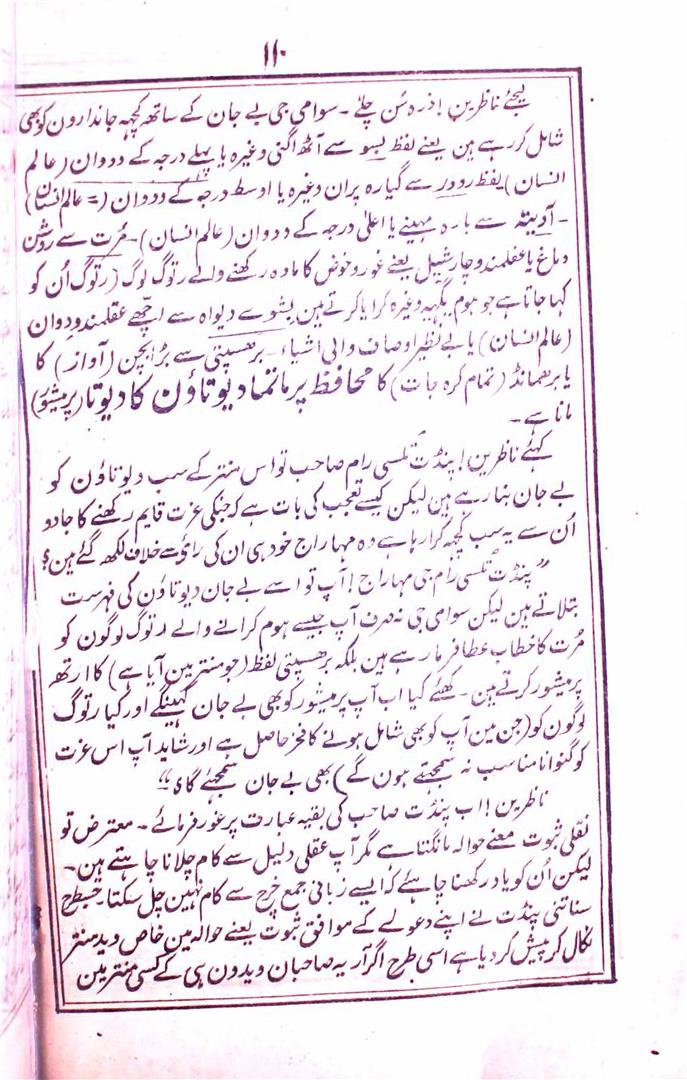 ۱۱۰
لیجئے ناظرین! ذرہ سُن چلئے ۔ سوامی جی بے جان کے ساتھ کچہہ جاندارون کو بھی
شامل کر رہے ہین یعنے لفظ بسو سے آٹھ اگنی وغیرہ یا پہلے درجہ کے ددوان (عالم
انسان) لفظ رودر سے گیارہ پران وغیرہ یا اوسط درجہ کے ددوان (= عالم انسان)
۔ آدیتہ سے بارہ مہینے یا اعلیٰ درجہ کے ددوان (عالم انسان) ۔ مُرت سے روشن
دماغ یا عقلمند وچار شیل یعنے غور و خوض کا مادہ رکھنے والے رتوگ لوگ (رتوگ اُن کو
کہا جاتا ہے جو ہوم یگیہ وغیرہ کرایا کرتے ہین بشوے دیواہ سے اچھے عقلمند ودوان
(عالم انسان) یا بے نظیر اوصاف والی اشیاء ۔ برھسپتی سے بڑا بچن (آواز) کا
یا برھمانڈ (تمام کرہ جات) کا محافظ پرماتما دیوتاؤن کا دیوتا (پرمیشور)
مانا ہے ۔
کہئے ناظرین! پنڈت تلسی رام صاحب تو اس منتر کے سب دیوتاؤن کو
بے جان بنا رہے ہین لیکن کیسے تعجب کی بات ہے کہ جنکی عزت قایم رکھنے کا جادو
اُن سے یہ سب کچہہ کرا رہا ہے وہ مہاراج خود ہی ان کی رائے سے خلاف لکھ گئے ہین؟
”پنڈت تلسی رام جی مہاراج! آپ تو اسے بے جان دیوتاؤن کی فہرست
بتلاتے ہین لیکن سوامی جی نہ صرف آپ جیسے ہوم کرانے والے رتوگ لوگون کو
مُرت کا خطاب عطا فرما رہے ہین بلکہ برھسپتی لفظ (جو منتر مین آیا ہے) کا ارتھہ
پرمیشور کرتے ہین ۔ کہئے کیا اب آپ پرمیشور کو بھی بے جان کہینگے اور کیا رتوگ
لوگون کو (جن مین آپ کو بھی شامل ہونے کا فخر حاصل ہے اور شاید آپ اس عزت
کو گنوانا مناسب نہ سمجھتے ہون گے) بھی بے جان سمجھئے گا؟“
ناظرین! اب پنڈت صاحب کی بقیہ عبارت پر غور فرمائے ۔ معترض تو
نقلی ثبوت معنے حوالہ مانگتا ہے مگر آپ عقلی دلیل سے کام چلانا چاہتے ہین ۔
لیکن اُن کو یاد رکھنا چاہئے کہ ایسے زبانی جمع خرچ سے کام نہین چل سکتا ۔ جسطرح
سناتنی پنڈت نے اپنے دعوے کے موافق ثبوت یعنے حوالہ مین خاص وید منتر
نکال کر پیش کر دیا ہے اسی طرح اگر آریہ صاحبان ویدون ہی کے کسی منتر مین